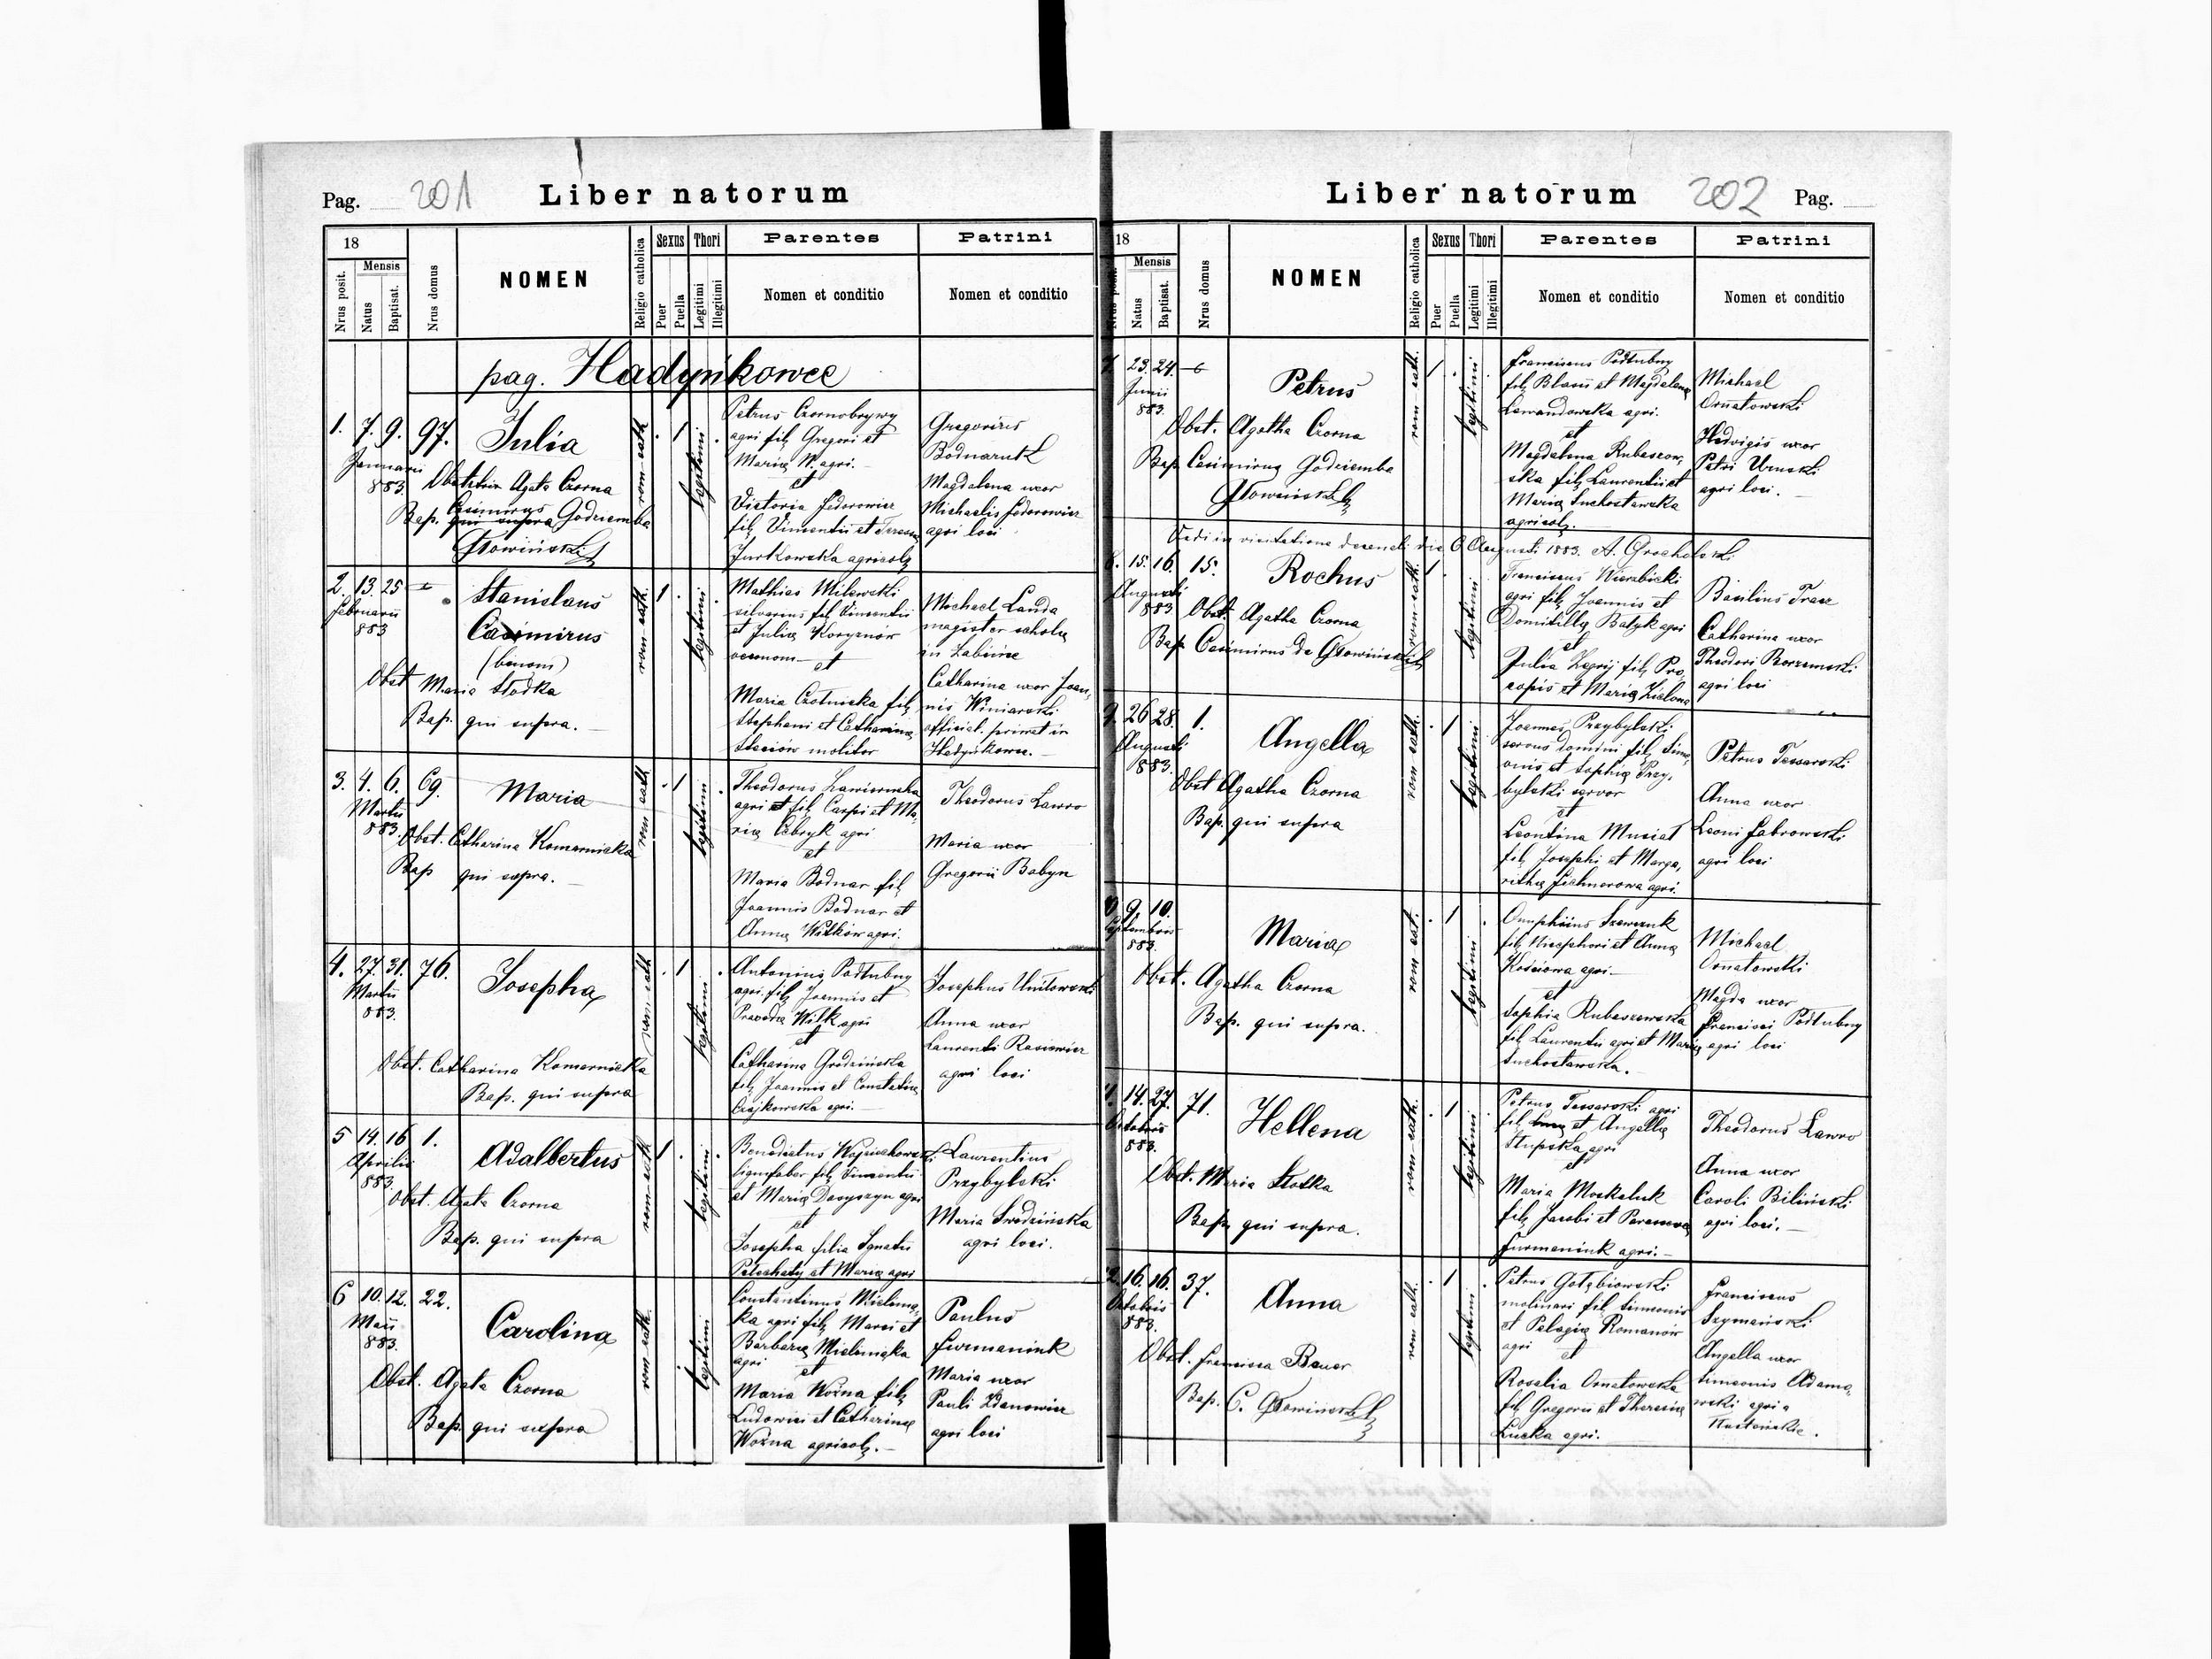 Pag. 201 Liber natorum
18 Sexus Thori Parentes Patrini
Nrus posit. Mensis Natus Baptisat. Nrus domus NOMEN Religio catholica Puer Puella Legitimi Illegitimi Nomen et conditio Nomen et conditio
pag. Hadyńkowce
1. 7. 9. 97. Julia rom-cath. 1 legitimi
Januarii
883. Obstetrix Agata Czorna
Bap. Casimirus Godziemba
Głowiński
Petrus Czornobrywy
agri fil. Gregori et
Maria N. agri.
et
Victoria Fedorowicz
fil. Vincentii et Teresa
Jurkowska agricol.
Gregorius
Bodnaruk
Magdalena uxor
Michaelis Fedorowicz
agri loci
2. 13. 25 Stanislaus rom-cath. 1 legitimi
Februarii
883
Casimirus
(binom)
Obst Maria Słodka
Bap. qui supra.
Mathias Milewski
silvarius fil Vincentii
et Julia
oeconom et
Maria Czotnicka fil.
Stephani et Catharina
molitor
Michael Landa
magister schola
in
Catharina uxor Joan,
nis Winiarski
official. privat in
Hadyńkowce.
3. 4. 6. 69. Maria rom cath 1 legitimi
Martii
883. Obst. Catharina Komarnicka
Bap qui supra.
Theodorus
agri et fil. Carpi et Ma,
ria Cebryk agri
et
Maria Bodnar fil.
Joannis Bodnar et
Anna Witków agri.
Theodorus Lawro
Maria uxor
Gregorii Babyn
4. 27. 31. 76. Josepha rom-cath 1 legitimi
Martii
883.
Obst. Catharina Komarnicka
Bap. qui supra
Antonius Podłubny
agri fil. Joannis et
Wilk agri
et
Catharina Grodzińska
fil. Joannis et
Czajkowska agri.
Josephus Unitowski
Anna uxor
Laurenti Rasiewicz
agri loci
5 14. 16 1. Adalbertus rom-cath 1 legitimi
Aprilii
883.
Obst. Agata Czorna
Bap. qui supra
Benedictus
lignifaber fil. Vincentii
et Maria agri
et
Josepha filia Ignatii
et Maria agri
Laurentius
Przybylski
Maria
agri loci.
6 10. 12. 22. Carolina rom-cath. 1 legitimi
Maii
883.
Obst. Agata Czorna
Bap. qui supra
Constantinus
agri fil. Marci et
Barbara
agri et
Maria Woźna fil.
Ludovici et Catharina
Woźna agricol.
Paulus
Furmaniuk
Maria uxor
Pauli Zdanowicz
agri loci
Liber natorum 202 Pag.
18 Sexus Thori Parentes Patrini
Mensis Natus Baptisat. Nrus domus NOMEN Religio catholica Puer Puella Legitimi Illegitimi Nomen et conditio Nomen et conditio
7. 23. 24. 6 Petrus rom-cath. 1 legitimi
Junii
883.
Obst. Agatha Czorna
Bap. Casimirus Godziemba
Głowiński
Franciscus Podłubny
fil. Blasii et Magdalena
Lewandowska agri.
et
Magdalena Rubaszew,
ska fil. Laurentii et
Maria Suchostawska
agricol.
Michael
Ornatowski
Hedvigis uxor
Petri
agri loci.
Vidi in visitatione decanali die 6 Augusti 1883. A. Grocholski
8. 15. 16. 15. Rochus rom-cath. 1 legitimi
Augusti
883
Obst. Agatha Czorna
Bap. Casimirus de Głowiński
Franciscus Wierzbicki
agri fil. Joannis et
Domicilla Batyk agri
et
Julia fil. Pro,
copii et Maria Zielona
Basilius
Catharina uxor
Theodori
agri loci
9. 26 28. 1. Angella rom cath. 1 legitimi
Augusti
883.
Obst Agatha Czorna
Bap. qui supra
Joannes Przybylski
servus domini fil. Sime,
onis et Sophia Przy,
bylski servor
et
Leontina Musiał
fil. Josephi et Marga,
ritha agri.
Petrus Tessarski
Anna uxor
Leoni Dabrowski
agri loci
9. 10. Maria rom cat. 1 legitimi
Septembris
883.
Obst. Agatha Czorna
Bap. qui supra.
Onuphrius Szewczuk
fil. Nicephori et Anna
agri
et
Sophia Rubaszewska
fil Laurentii agri et Maria
Suchostawska.
Michael
Ornatowski
Magda uxor
Francisci Podłubny
agri loci
14. 27. 71. Hellena rom-cath. 1 legitimi
Octobris
883.
Obst. Maria Słodka
Bap. qui supra.
Petrus Tessarski agri
fil. et Angella
Stupska agri
et
Maria Moskaluk
fil. Jacobi et
Furmaniuk agri.
Theodorus Lawro
Anna uxor
Caroli Biliński
agri loci.
16. 16. 37. Anna rom cath. 1 legitimi
Octobris
883.
Obst. Francisca Bauer
Bap. C. Głowiński
Petrus Gołębiowski
molinari fil Simeonis
et Pelagia Romanów
agri et
Rosalia Ornatowska
fil. Gregorii et Theresia
Lucka agri.
Franciscus
Szymański
Angella uxor
Simeonis Adamo,
wski agri